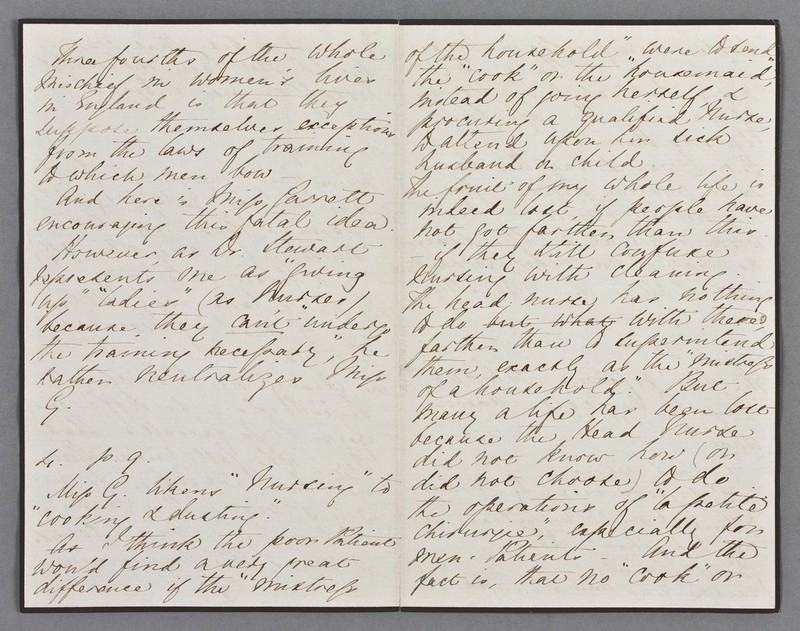 Three fourths of the whole
mischief in women's lives
in England is that they
suppose themselves exceptions
from the laws of training
to which men bow –
And here is Miss Garrett
encouraging this fatal idea.
However, as Dr. Stewart
represents me as "giving
up" "ladies" (as Nurses),
because they "can't "undergo
the training necessary", he
rather neutralizes Miss
G.
p 9.
Miss G. likens "Nursing" to
"cooking & dusting".
As I think the poor Patient
would find a very great
difference if the "mistress
of the household" were to send
the "cook" or the "housemaid",
instead of going herself &
procuring a qualified Nurse,
to attend upon her sick
husband or child.
The fruit of my whole life is
indeed lost if people have
not got farther than this.
– if they still confuse
Nursing with cleaning.
The head nurse has nothing
to do but what with these
farther than to superintend
them, exactly as the "mistress
of a household." But
many a life has been lost
because the Head Nurse
did not know how (or
did not choose) to do
the operations of "la petite
chirurgie", especially for
men-Patients – And the
fact is, that no "cook" or